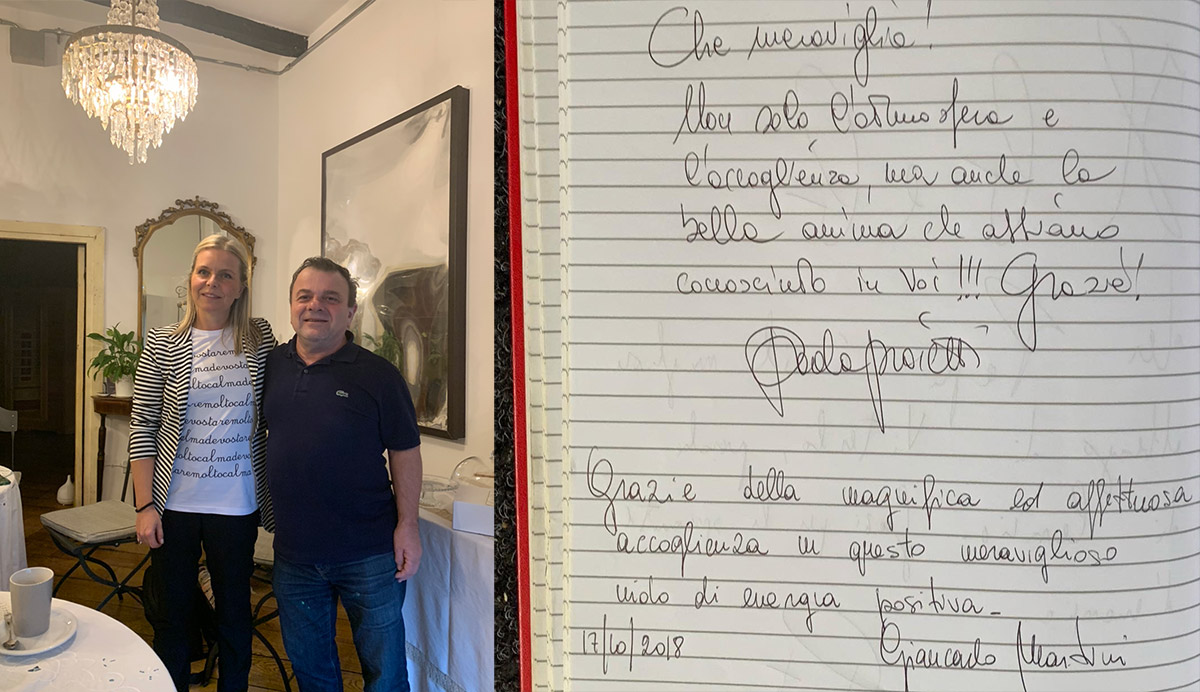 ostaremo
oltocalmade
devostarem
ltocalmade
aremoltoca
evostaremolt
almadevostare
oltocalmadev
aremoltocalma
Che meraviglia!
Non solo l'atmosfera e
l'accoglienza, ma anche la
bella anima che abbiamo
conosciuto in Voi!!! Grazie!
Paola Proietti
Grazie della magnifica ed affettuosa
accoglienza in questo meraviglioso
nido di energia positiva_
17/10/2018 Giancarlo Martini